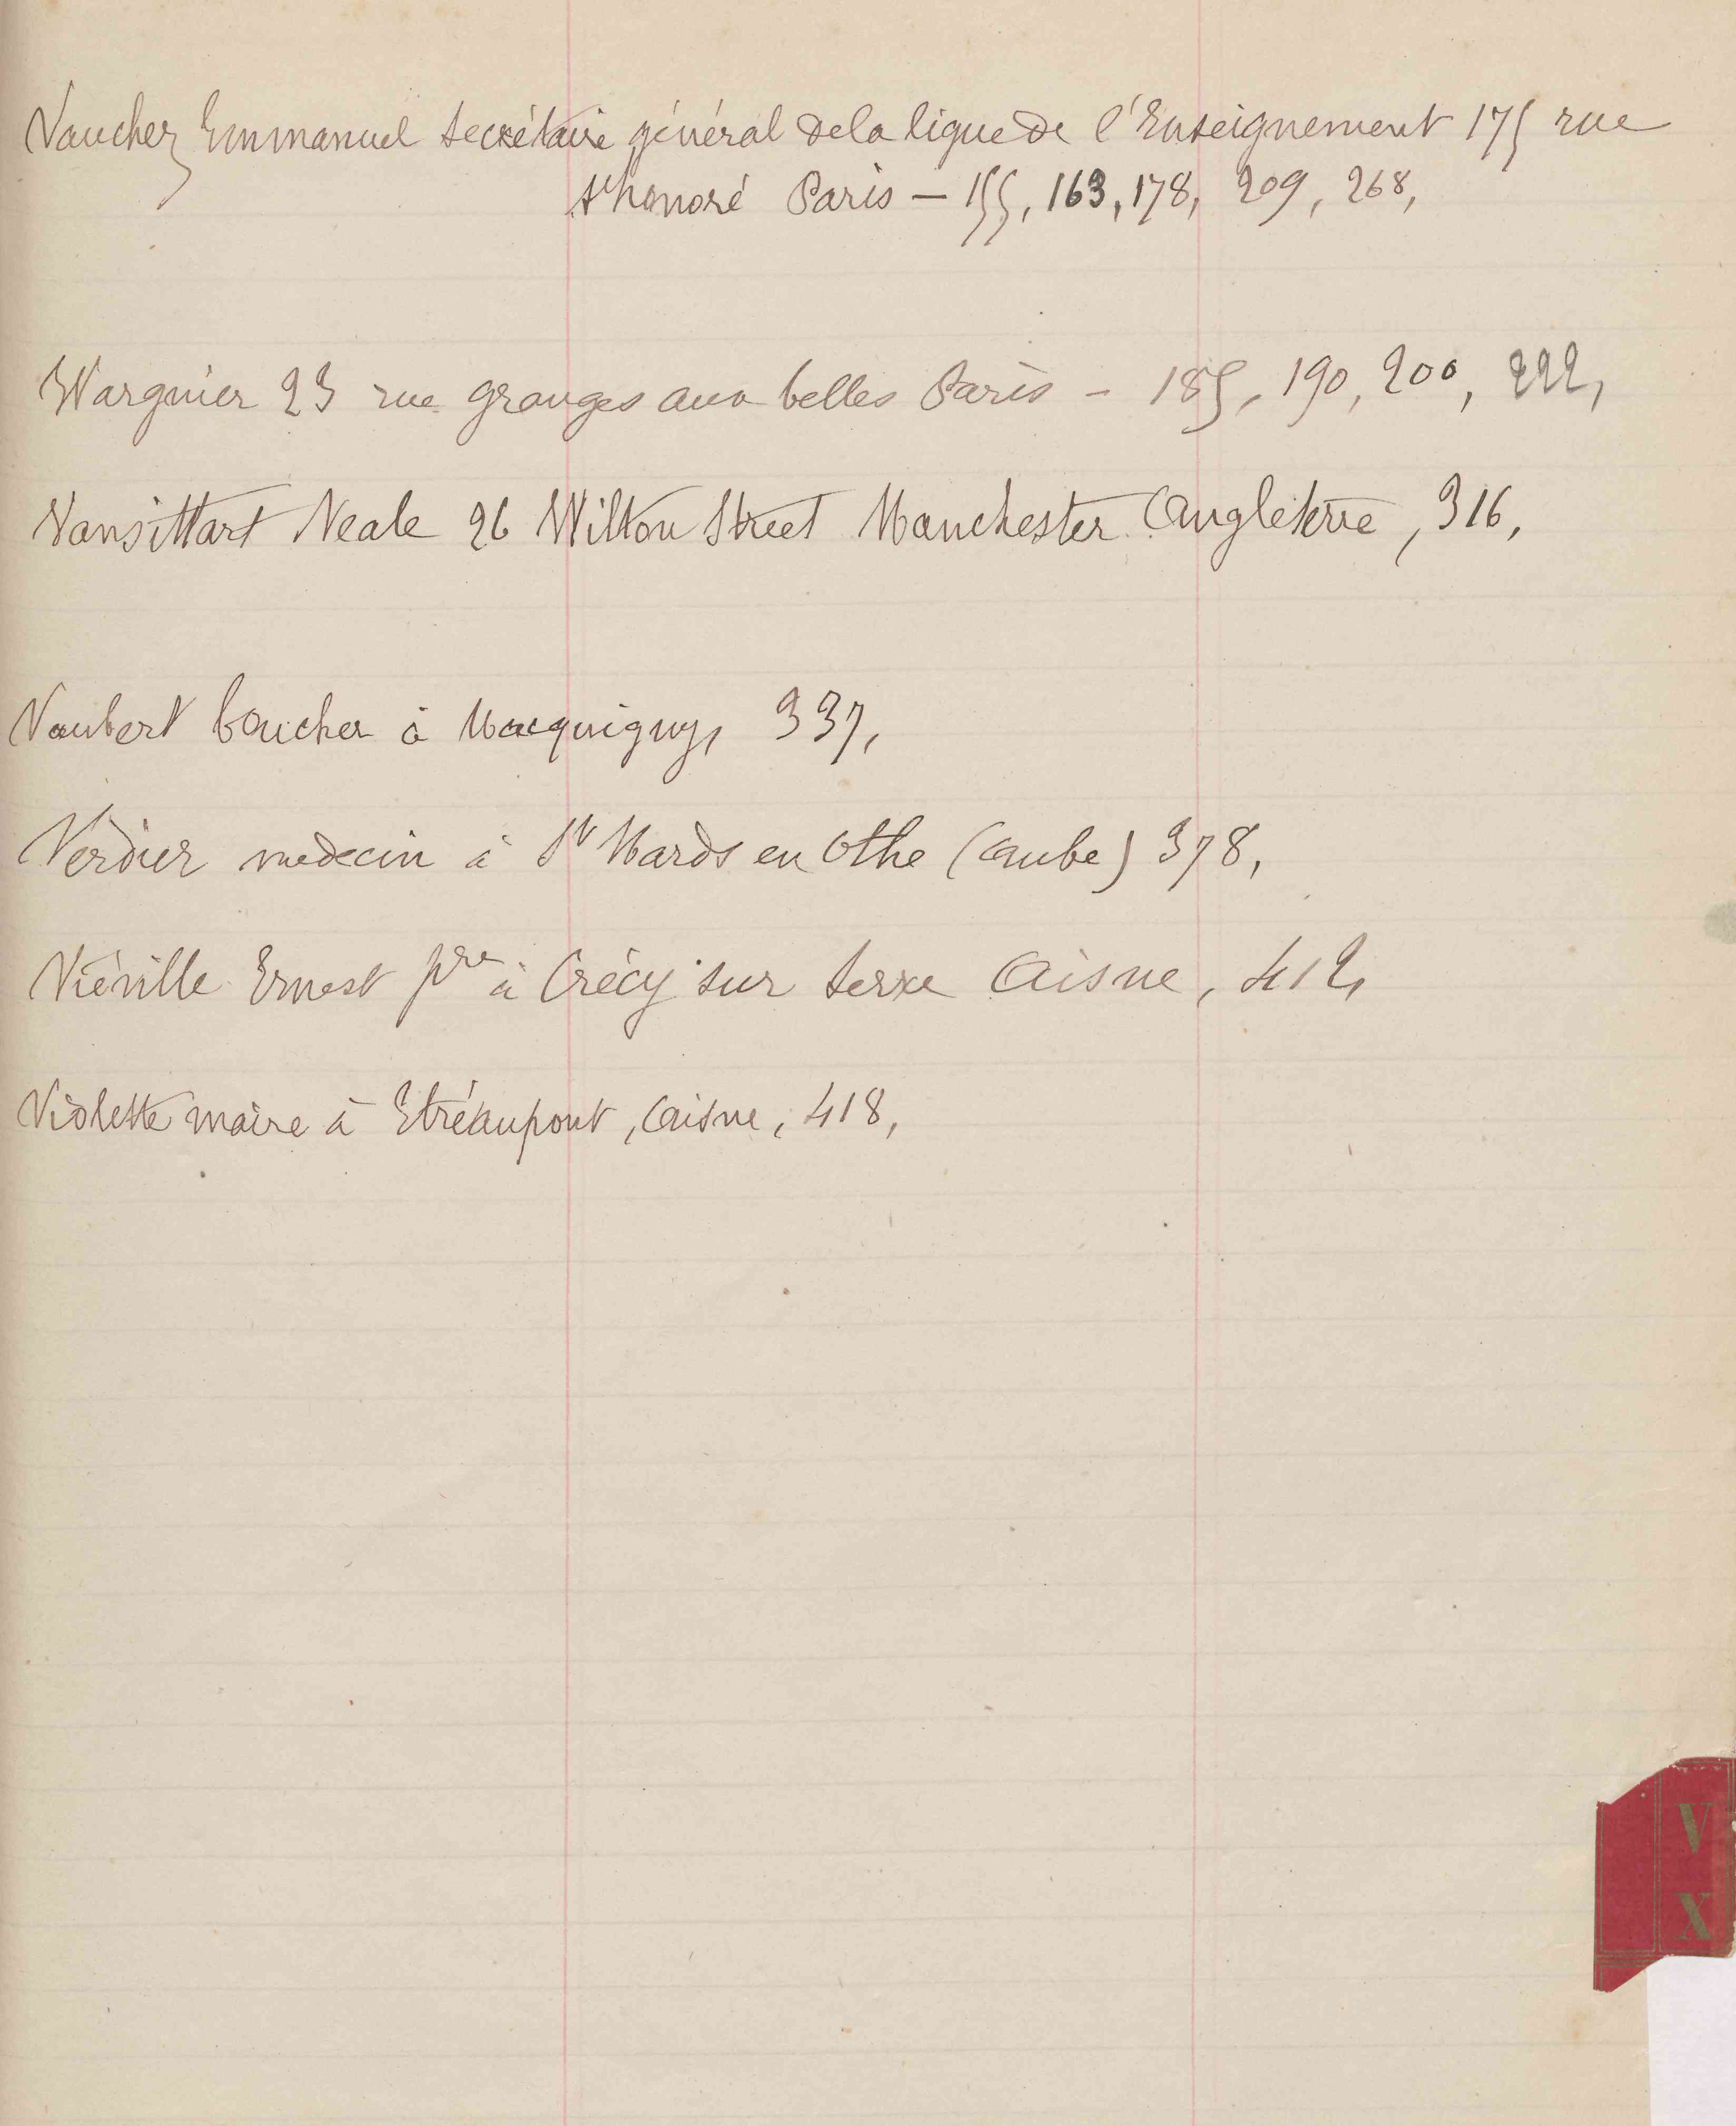 Vauchez Emmanuel secrétaire général de la ligue de l'Enseignement 175 rue
St honoré Paris — 155, 163, 178, 209, 268,
Wargnier 23 rue granges aux belles Paris - 185, 190, 200, 222,
Vansittart Neale 26 Wilton Street Manchester Angleterre, 316,
Vaubert boucher à Macquigny, 337,
Verdier medecin à St Mards en Othe (aube) 378,
Viéville Ernest pre à Crécy sur serre Aisne, 412,
Violette maire à Etréaupont, Aisne, 418,
V
X